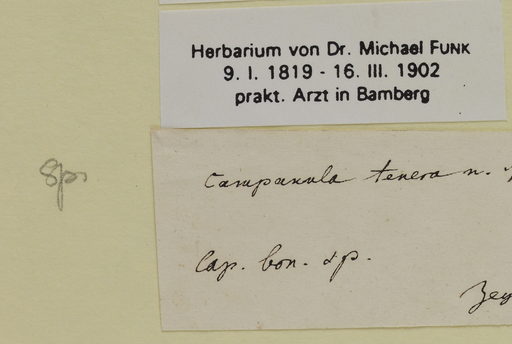 Herbarium von Dr. Michael FUNK
9. I. 1819 - 16. III. 1902
prakt. Arzt in Bamberg
Sp.
Campanula tenera n.
Cap. bon. sp.
Zey